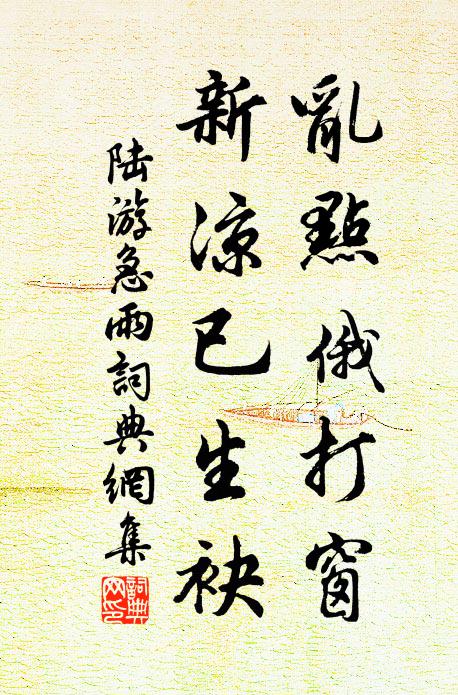 亂點俄打窗
新涼已生袂
陸游急雨詞典網集
詞典
网印